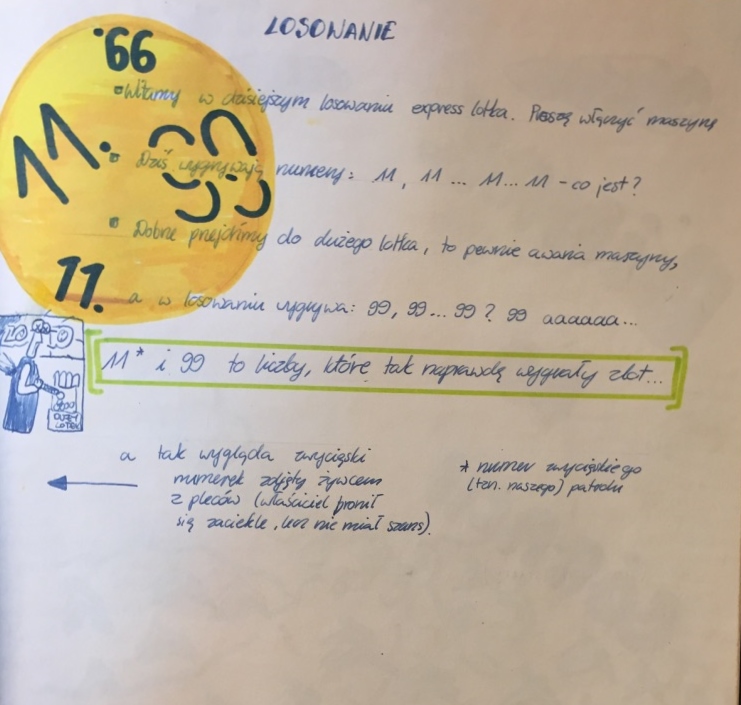 LOSOWANIE
66
Witamy w dzisiejszym losowaniu express lotka. Proszę włączyć maszynę
11. 99
Dziś wygrywają numery: 11, 11 ... 11... 11 - co jest?
Dobrze przejdźmy do dużego lotka, to pewnie awaria maszyny,
11.
a w losowaniu wygrywa: 99, 99... 99? 99 aaaaaa...
LOTTO
11* i 99 to liczby, które tak naprawdę wygrały zlot...
DUŻY
LOTEK
a tak wygląda zwycięski
numerek zdjęty żywcem
z pleców (właściciel bronił
się zaciekle, lecz nie miał szans).
* numer zwycięskiego
(tzn. naszego) patrolu